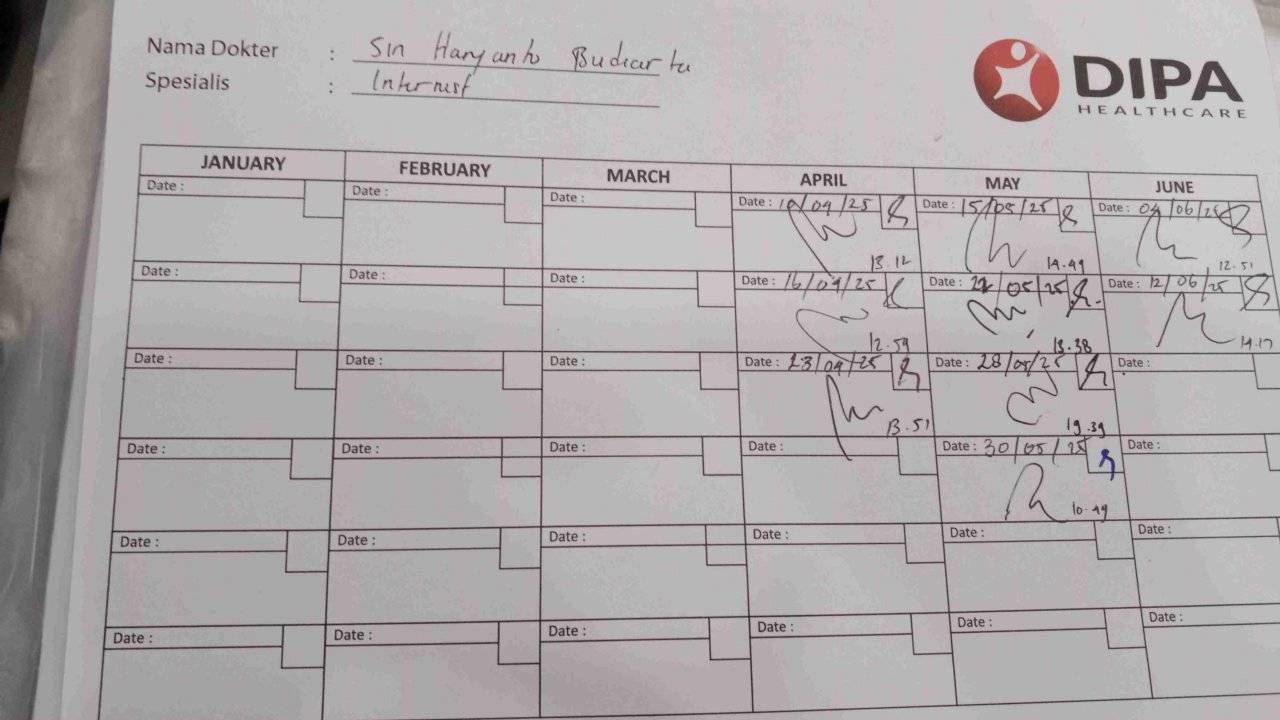 Nama Dokter : Sin Haryanto Budiarta
Spesialis : Internist
DIPA
HEALTHCARE
JANUARY FEBRUARY MARCH APRIL MAY JUNE
Date : Date : Date : Date : 10/04/25 Date : 15/05/25 Date : 04/06/25
13.12 14.49 12.51
Date : Date : Date : Date : 16/04/25 Date : /05/25 Date : 12/06/25
12.59 13.38 14.17
Date : Date : Date : Date : 23/04/25 Date : 28/05/25 Date :
13.51 19.39
Date : Date : Date : Date : Date : 30/05/25 Date :
10.49
Date : Date : Date : Date : Date : Date :
Date : Date : Date : Date : Date : Date :